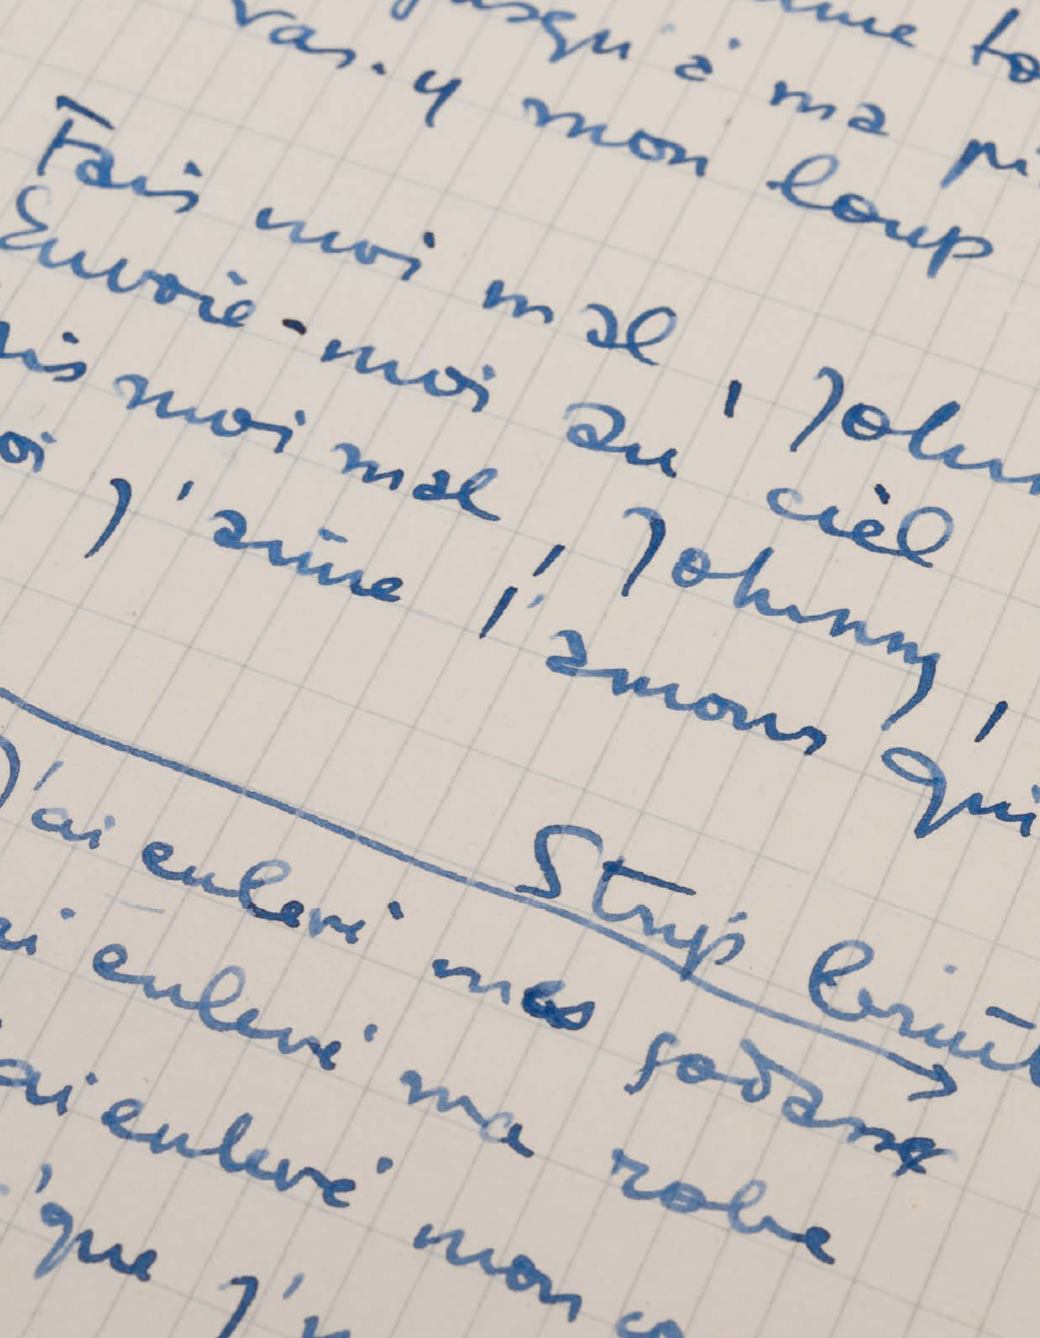 jusqu'à ma
Vas-y mon loup
Fais moi mal, Johnn
Envoie-moi au ciel
ais moi mal, Johnny,
oi j'aime l'amour qui
Strip bruit
J'ai enlevé mes godass
ai enlevé ma robe
ai enlevé mon co
que j'